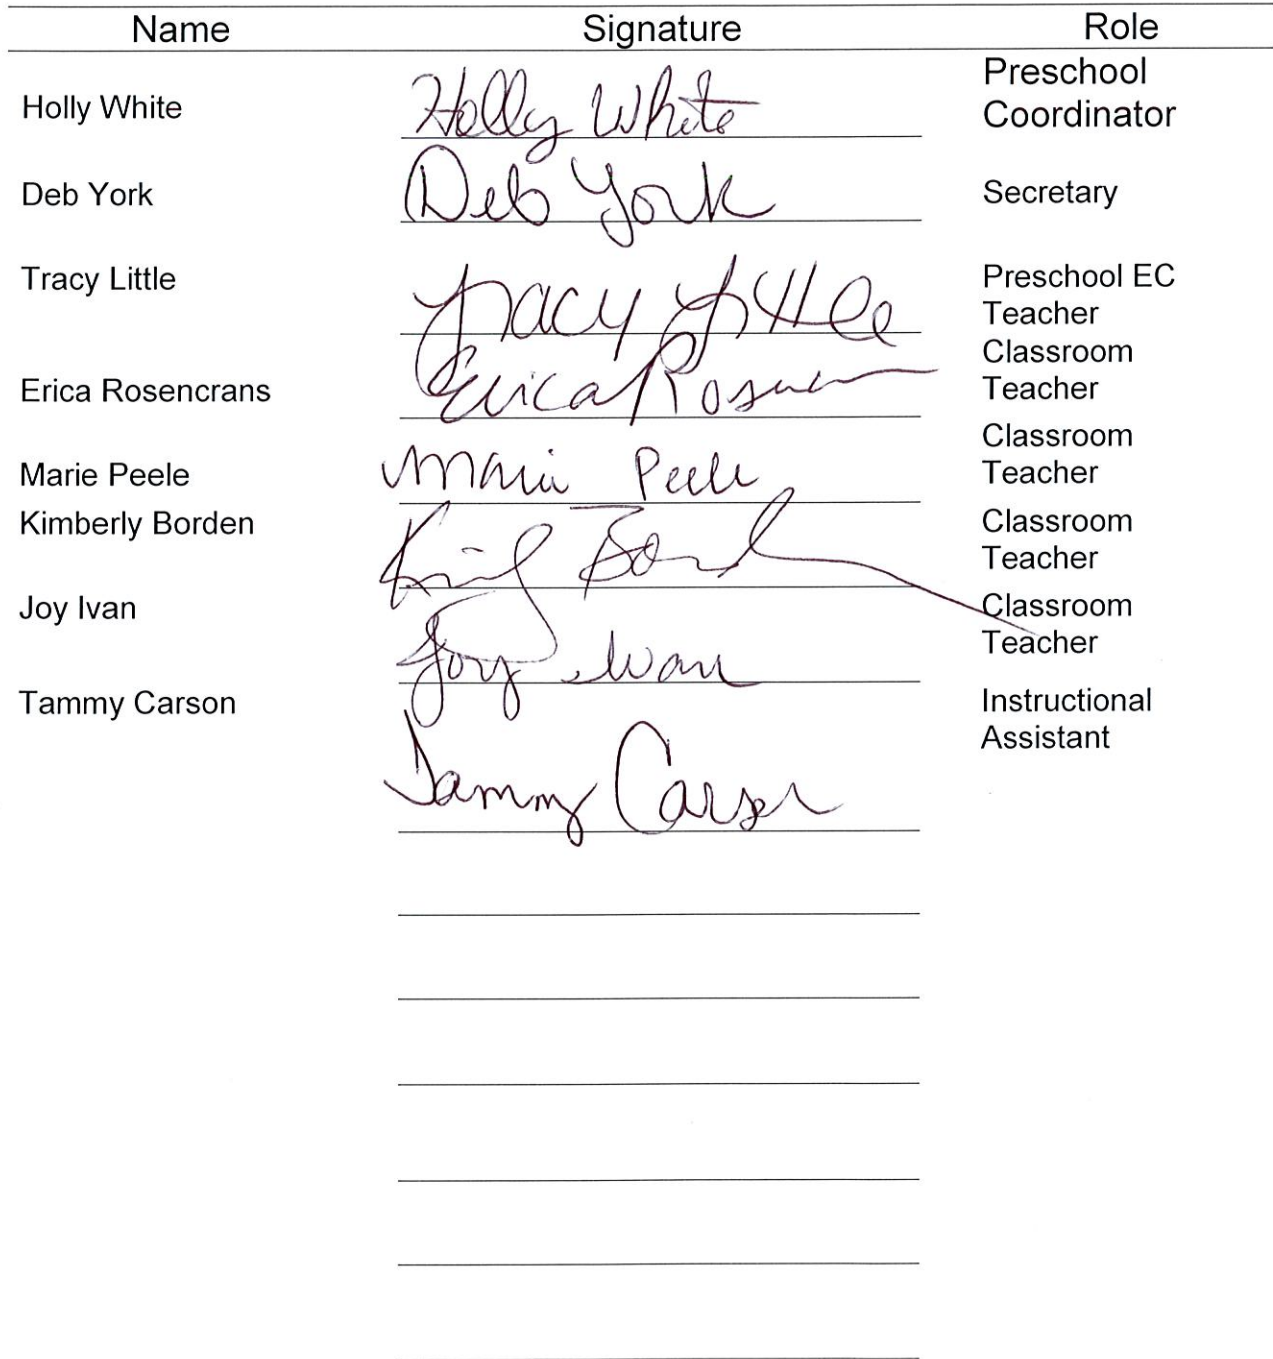 Name Signature Role
Preschool
Holly White Holly White Coordinator
Deb York Deb York Secretary
Tracy Little Tracy Little Preschool EC
Teacher
Classroom
Erica Rosencrans Erica Teacher
Classroom
Marie Peele Marie Peele Teacher
Kimberly Borden Classroom
Teacher
Joy Ivan Joy Ivan Classroom
Teacher
Tammy Carson Tammy Carson Instructional
Assistant